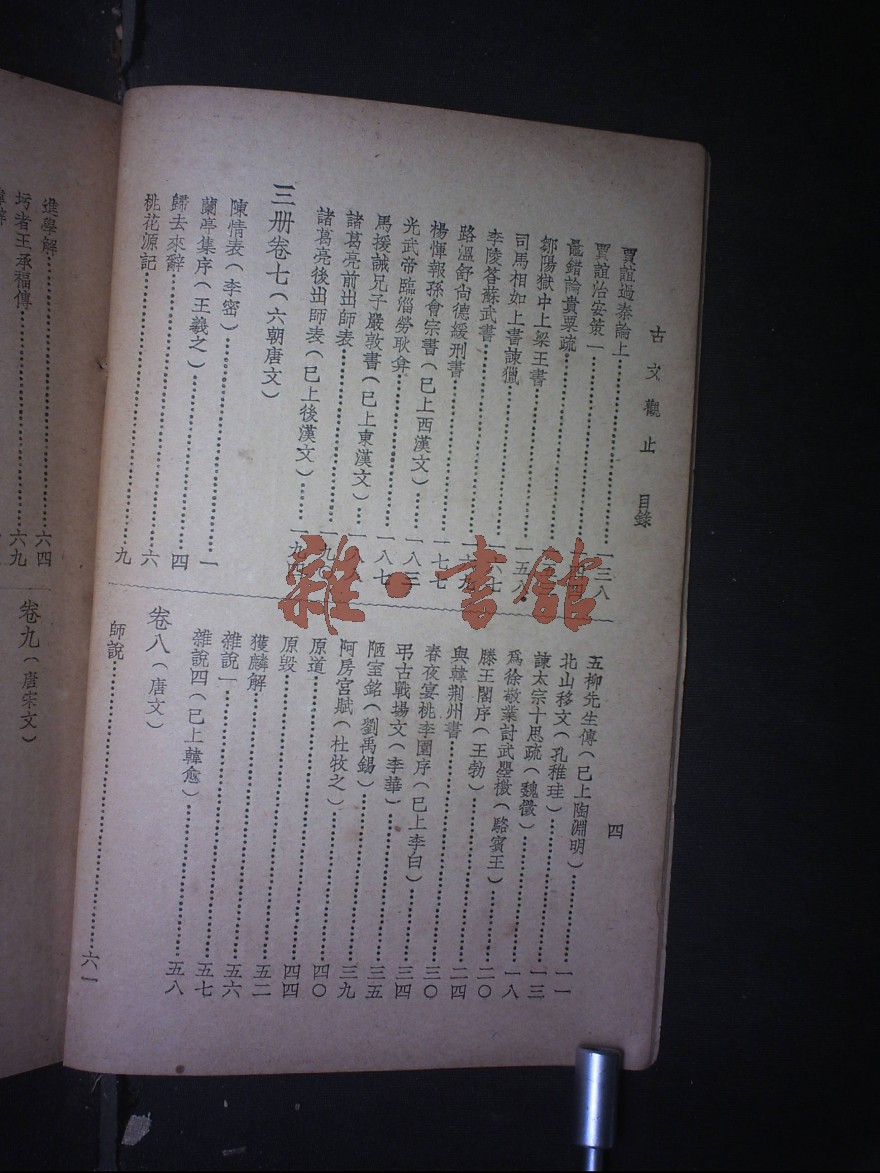 古文觀止 目錄
四
賈誼過秦論上 一三八
賈誼治安策一
鼂錯論貴粟疏
鄒陽獄中上梁王書
司馬相如上書諫獵 一五八
李陵答蘇武書 一六七
路溫舒尚德緩刑書
楊惲報孫會宗書(已上西漢文) 一七七
光武帝臨淄勞耿弇 一八三
馬援誡兄子嚴敦書(已上東漢文) 一八七
諸葛亮前出師表
諸葛亮後出師表(已上後漢文)
三册卷七(六朝唐文)
陳情表(李密) 一
蘭亭集序(王羲之) 四
歸去來辭 六
桃花源記 九
五柳先生傳(已上陶淵明) 一一
北山移文(孔稚珪) 一三
諫太宗十思疏(魏徵) 一八
爲徐敬業討武曌檄(駱賓王) 二〇
滕王閣序(王勃) 二四
與韓荆州書 三〇
春夜宴桃李園序(已上李白) 三四
弔古戰場文(李華) 三五
陋室銘(劉禹錫) 三九
阿房宮賦(杜牧之) 四〇
原道 四四
原毀 五二
獲麟解 五六
雜說一 五七
雜說四(已上韓愈) 五八
卷八(唐文)
師說 六一
進學解 六四
圬者王承福傳 六九
卷九(唐宋文)
雜·書館